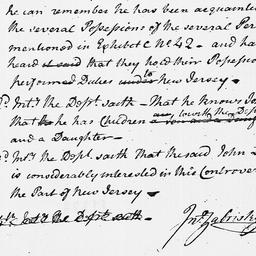 he can remember he has been acquainted
the several Possessions of the several Per
mentioned in Exhibit C No. 42 - and ha
heard it said that they hold their Possessio
performed Duties under to New Jersey -
Intr. the Dept. saith - That he knows Jo
That he has Children a Son and a
and a Daughter -
Intr. the Dept. saith that the said John
is considerably interested in this Controver
the Part of New Jersey -
Intr. the Dept. saith
Jno. Zabriskie